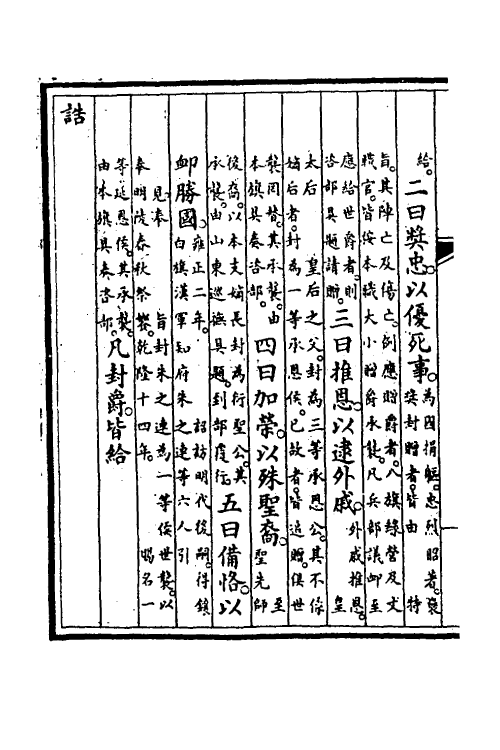 給。二曰奬忠。以優死事。為國捐軀。忠烈昭著。褒
奬封贈者。皆由 特
旨。其陣亡及傷亡。例應贈爵者。八旗綠營及文
職官。皆按本職大小贈爵承襲。凡兵部議卹至
應給世爵者。則
咨部具題請贈。三曰推恩。以逮外戚。外戚推恩。
皇
太后 皇后之父。封為三等承恩公。其不係
嫡后者。封為一等承恩侯。已故者。皆追贈。俱世
襲罔替。其承襲。由
本旗具奏咨部。四曰加榮。以殊聖裔。至
聖先師
後裔。以本支嫡長封為衍聖公。其
承襲。由山東巡撫具題。到部覆行。五曰備恪。以
卹勝國。雍正二年。 詔訪明代後嗣。得鑲
白旗漢軍知府朱之璉等六人引
見奉 旨封朱之璉為一等侯世襲。以
奉明陵春秋祭。乾隆十四年。 賜名一
等延恩侯。其承襲。
由本旗具奏咨部。凡封爵。皆給
誥